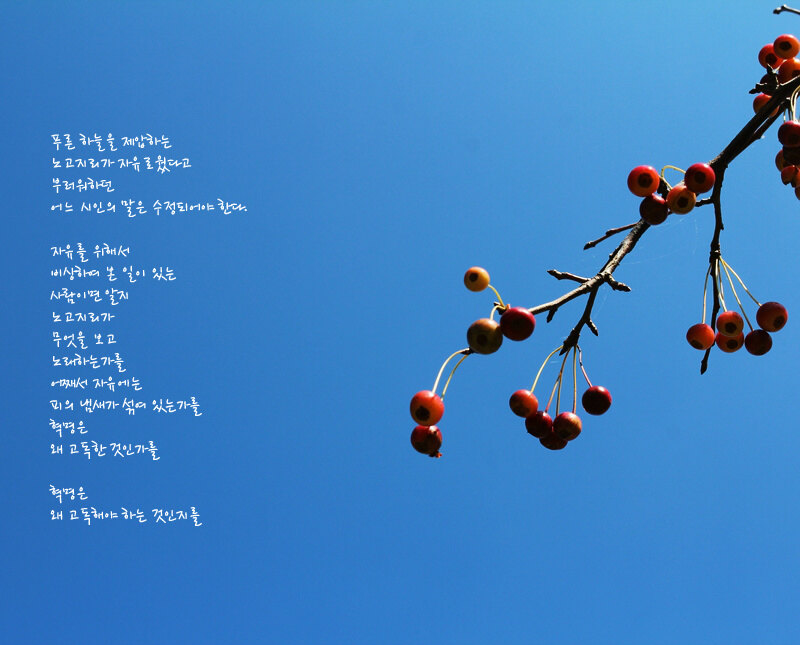 푸른 하늘을 제압하는
노고지리가 자유로웠다고
부러워하던
어느 시인의 말은 수정되어야 한다.
자유를 위해서
비상하여 본 일이 있는
사람이면 알지
노고지리가
무엇을 보고
노래하는가를
어째서 자유에는
피의 냄새가 섞여 있는가를
혁명은
왜 고독한 것인가를
혁명은
왜 고독해야 하는 것인지를